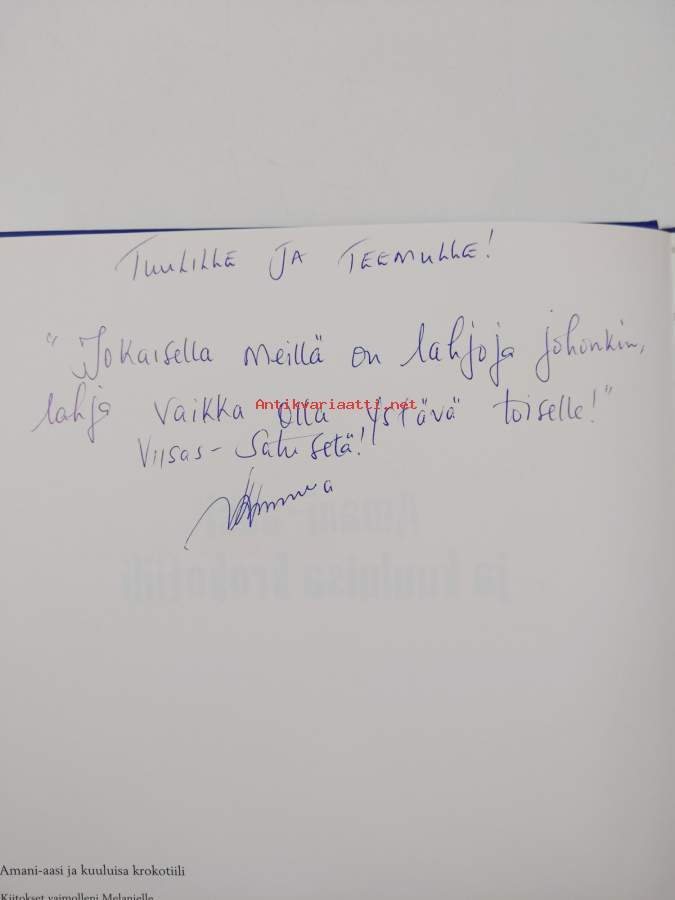 TUULILLE JA TEEMULLE!
"Jokaisella meillä on lahjoja johonkin,
lahja vaikka olla ystävä toiselle!"
Antikvariaatti.net
Viisas-Satusetä!
Amani-aasi
ja kuuluisa krokotiili
Amani-aasi ja kuuluisa krokotiili
Kiitokset vaimolleni Melanielle